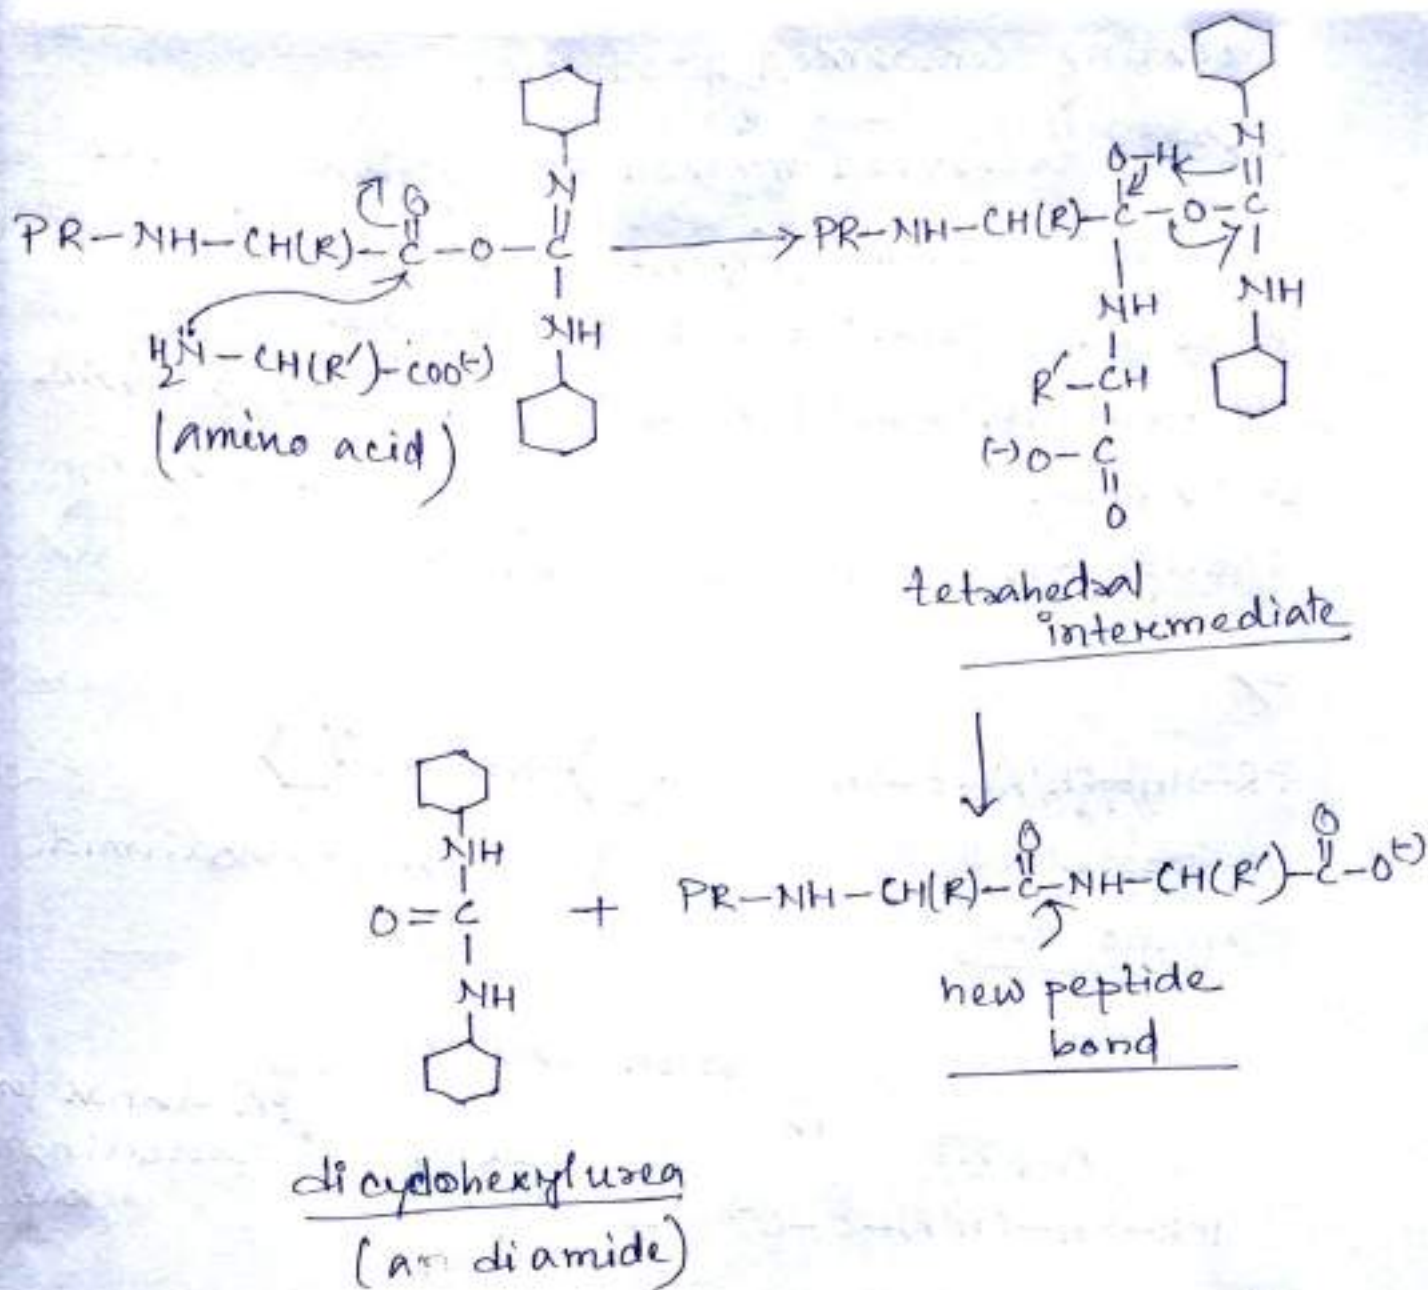 PR-NH-CH(R)-C-O-C
O
N
NH
H2N-CH(R')-COO(-)
(amino acid)
PR-NH-CH(R)-C-O-C
O-H
N
NH
NH
R'-CH
(-)O-C
O
tetrahedral
intermediate
NH
O=C
NH
+
PR-NH-CH(R)-C-NH-CH(R')-C-O(-)
O
O
new peptide
bond
dicyclohexylurea
(an diamide)